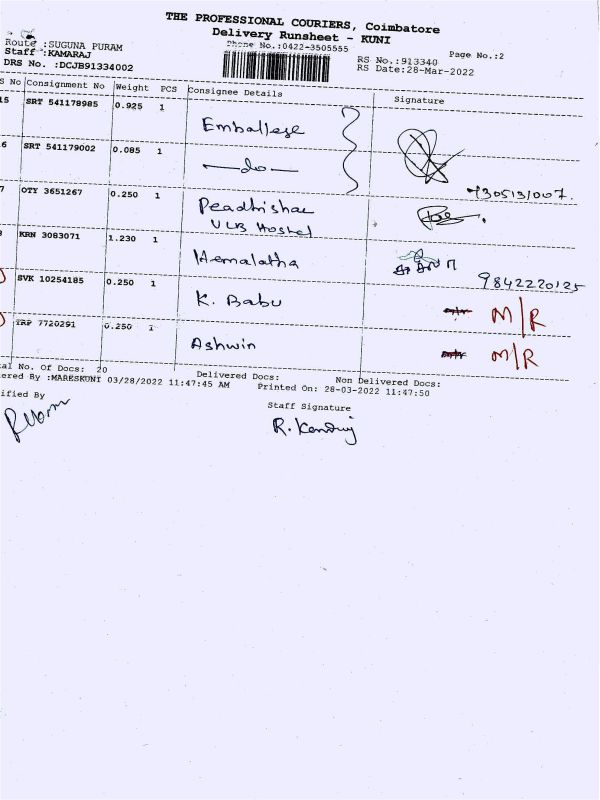 THE PROFESSIONAL COURIERS, Coimbatore
Delivery Runsheet - KUNI
Phone No.:0422-3505555
Page No.:2
Route :SUGUNA PURAM
Staff :KAMARAJ
DRS No. :DCJB91334002
RS No.:913340
RS Date:28-Mar-2022
S No Consignment No Weight PCS Consignee Details Signature
15 SRT 541178985 0.925 1 Emballege
6 SRT 541179002 0.085 1 —do—
7305131007.
7 OTY 3651267 0.250 1 Peadhishae
VLB Hostel
KRN 3083071 1.230 1 Hemalatha
9842220125
SVK 10254185 0.250 1 K. Babu M/R
TRP 7720291 0.250 1 Ashwin M/R
al No. Of Docs: 20 Delivered Docs: Non Delivered Docs:
ered By :MARESKUNI 03/28/2022 11:47:45 AM Printed On: 28-03-2022 11:47:50
ified By
Staff Signature